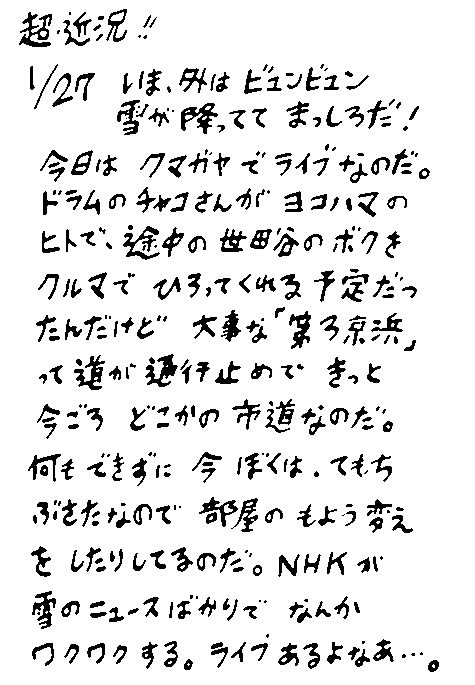 超・近況!!
1/27 いま、外は ビュンビュン
雪が降ってて まっしろだ!
今日は クマガヤ で ライブなのだ。
ドラムのチャコさんが ヨコハマの
ヒトで、途中の 世田谷の ボクを
クルマで ひろってくれる 予定だっ
たんだけど 大事な「第3京浜」
って道が 通行止めで きっと
今ごろ どこかの 市道なのだ。
何もできずに 今 ぼくは、てもち
ぶさたなので 部屋の もよう変え
を したりしてるのだ。NHKが
雪のニュースばかりで なんか
ワクワクする。ライブあるよなあ…。